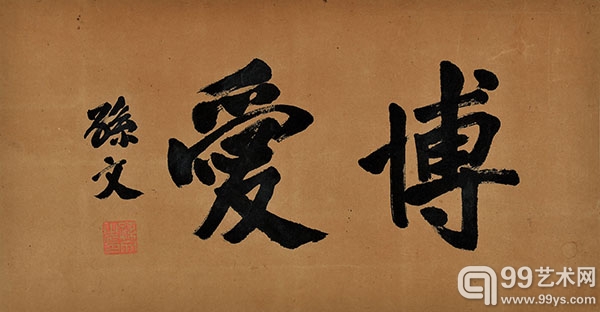 博愛
孫文
99艺术网
www.99ys.com